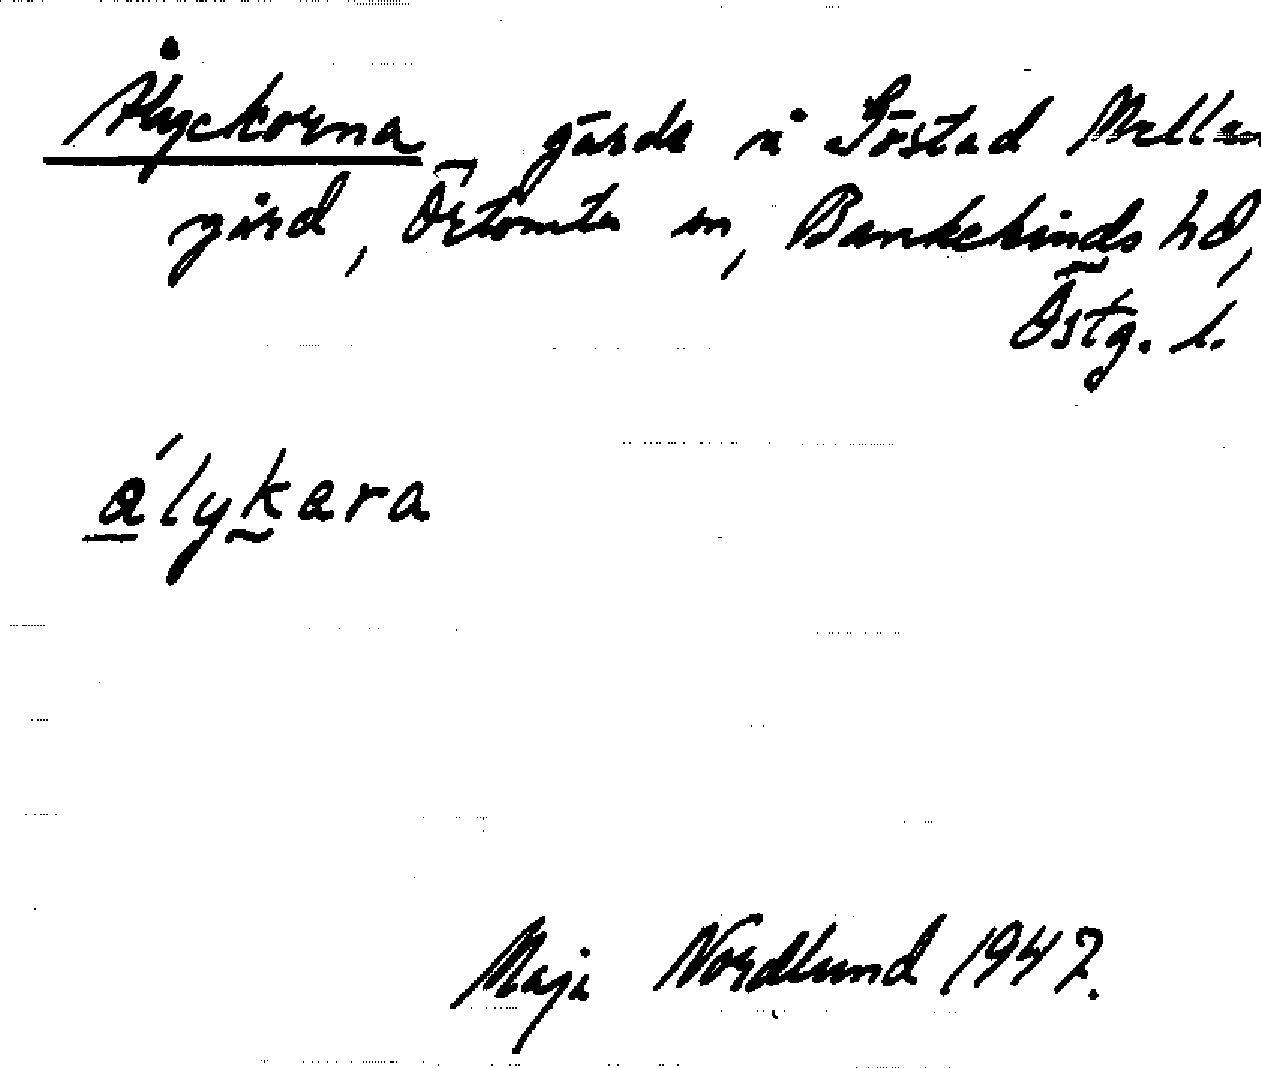 Ålyckorna gärde i Göstad Mellan
gård, Örtomta sn, Bankekinds hd,
Östg. l.
a´lykara
Maja Nordlund 1947.